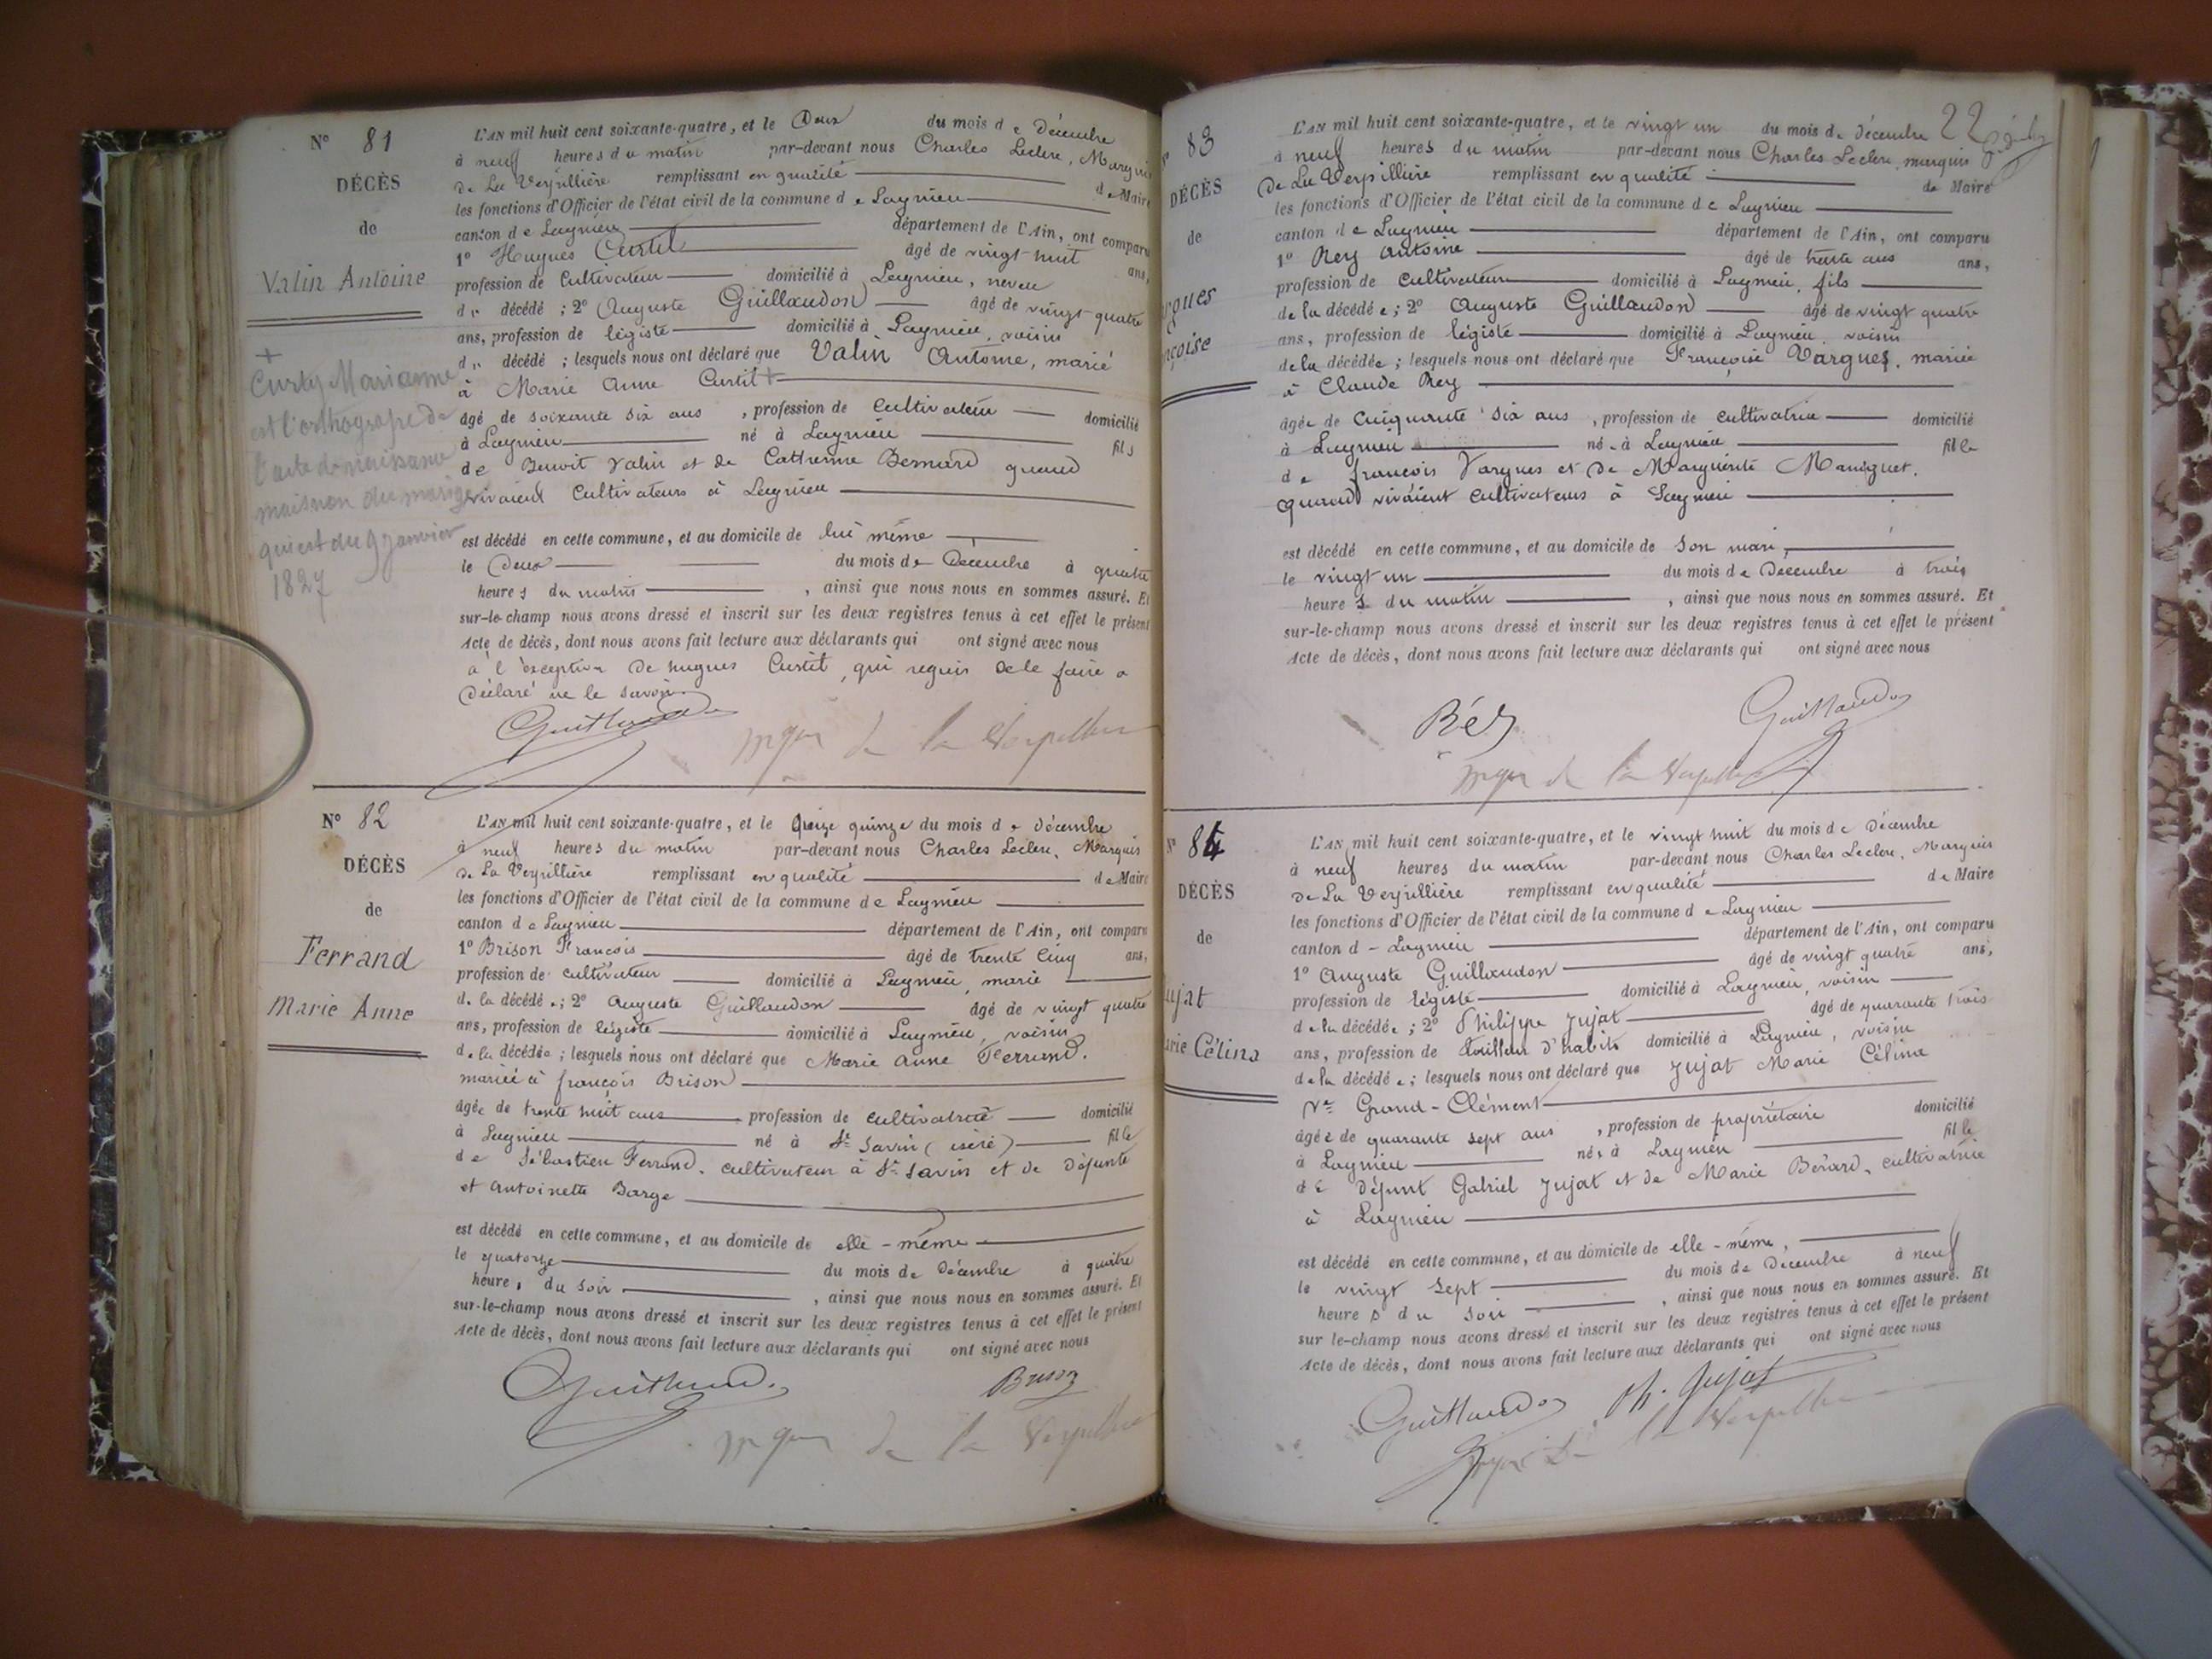 N° 81
DÉCÈS
de
Valin Antoine
+
Curty Marianne
est l'orthographe de
l'acte de naissance
mais non du mariage
qui est du 9 janvier
1827
L'AN mil huit cent soixante-quatre, et le Deux du mois de Décembre
à neuf heures du matin par-devant nous Charles Leclerc, Marquis
de La Verpillière remplissant en qualité de Maire
les fonctions d'Officier de l'état civil de la commune de Lagnieu
canton de Lagnieu département de l'Ain, ont comparu
1° Hugues Curtil âgé de vingt-huit ans,
profession de Cultivateur domicilié à Lagnieu, neveu
du décédé ; 2° Auguste Guillaudon âgé de vingt quatre
ans, profession de légiste domicilié à Lagnieu, voisin
du décédé ; lesquels nous ont déclaré que Valin Antoine, marié
à Marie Anne Curtil +
âgé de soixante six ans , profession de Cultivateur domicilié
à Lagnieu né à Lagnieu fils
de Benoit Valin et de Catherine Bernard quand
vivaient Cultivateurs à Lagnieu
est décédé en cette commune, et au domicile de lui même
le Deux du mois de Décembre à quatre
heures du matin , ainsi que nous nous en sommes assuré. Et
sur-le-champ nous avons dressé et inscrit sur les deux registres tenus à cet effet le présent
Acte de décès, dont nous avons fait lecture aux déclarants qui ont signé avec nous
à l'exception de hugues Curtil, qui requis de le faire a
Déclaré ne le savoir.
Guillaudon
Mquis de la Verpillière
N° 82
DÉCÈS
de
Ferrand
Marie Anne
L'AN mil huit cent soixante-quatre, et le quinze du mois de décembre
à neuf heures du matin par-devant nous Charles Leclerc, Marquis
de La Verpillière remplissant en qualité de Maire
les fonctions d'Officier de l'état civil de la commune de Lagnieu
canton de Lagnieu département de l'Ain, ont comparu
1° Brison François âgé de trente cinq ans,
profession de cultivateur domicilié à Lagnieu, marié
de la décédée ; 2° Auguste Guillaudon âgé de vingt quatre
ans, profession de légiste domicilié à Lagnieu, voisin
de la décédée ; lesquels nous ont déclaré que Marie Anne Ferrand.
mariée à françois Brison
âgée de trente huit ans profession de cultivatrice domicilié
à Lagnieu né à St Savin (isère) fille
de Sébastien Ferrand. cultivateur à St Savin et de Défunte
et Antoinette Barge
est décédé en cette commune, et au domicile de elle-même
le quatorze du mois de Décembre à quatre
heures du soir , ainsi que nous nous en sommes assuré. Et
sur-le-champ nous avons dressé et inscrit sur les deux registres tenus à cet effet le présent
Acte de décès, dont nous avons fait lecture aux déclarants qui ont signé avec nous
Guillaudon
Brison
Mquis de la Verpillière
22
N° 83
DÉCÈS
de
rgues
nçoise
L'AN mil huit cent soixante-quatre, et le vingt un du mois de Décembre
à neuf heures du matin par-devant nous Charles Leclerc marquis
De La Verpillière remplissant en qualité de Maire
les fonctions d'Officier de l'état civil de la commune de Lagnieu
canton de Lagnieu département de l'Ain, ont comparu
1° Rey Antoine âgé de trente ans ans,
profession de Cultivateur domicilié à Lagnieu, fils
de la décédée ; 2° Auguste Guillaudon âgé de vingt quatre
ans, profession de légiste domicilié à Lagnieu, voisin
de la décédée ; lesquels nous ont déclaré que Françoise Vargues, mariée
à Claude Rey
âgée de Cinquante six ans , profession de cultivatrice domicilié
à Lagnieu née à Lagnieu fille
de françois Vargues et de Marguerite Maniguet.
quand vivaient cultivateurs à Lagnieu
est décédé en cette commune, et au domicile de Son mari,
le vingt un du mois de Décembre à trois
heures du matin , ainsi que nous nous en sommes assuré. Et
sur-le-champ nous avons dressé et inscrit sur les deux registres tenus à cet effet le présent
Acte de décès, dont nous avons fait lecture aux déclarants qui ont signé avec nous
Réy
Guillaudon
Mquis de la Verpillière
N° 84
DÉCÈS
de
ujat
arie Célina
L'AN mil huit cent soixante-quatre, et le vingt huit du mois de Décembre
à neuf heures du matin par-devant nous Charles Leclerc, Marquis
de La Verpillière remplissant en qualité de Maire
les fonctions d'Officier de l'état civil de la commune de Lagnieu
canton d - Lagnieu département de l'Ain, ont comparu
1° Auguste Guillaudon âgé de vingt quatre ans,
profession de légiste domicilié à Lagnieu, voisin
de la décédée ; 2° Philippe Jujat âgé de quarante trois
ans, profession de tailleur d'habits domicilié à Lagnieu, voisin
de la décédée ; lesquels nous ont déclaré que Jujat Marie Célina
Ve Grand-Clément
âgée de quarante sept ans , profession de propriétaire domicilié
à Lagnieu née à Lagnieu fille
de Défunt Gabriel Jujat et de Marie Bérard, cultivatrice
à Lagnieu
est décédé en cette commune, et au domicile de elle-même,
le vingt sept du mois de Décembre à neuf
heures du Soir , ainsi que nous nous en sommes assuré. Et
sur le-champ nous avons dressé et inscrit sur les deux registres tenus à cet effet le présent
Acte de décès, dont nous avons fait lecture aux déclarants qui ont signé avec nous
Guillaudon
Ph. Jujat
Mquis de la Verpillière